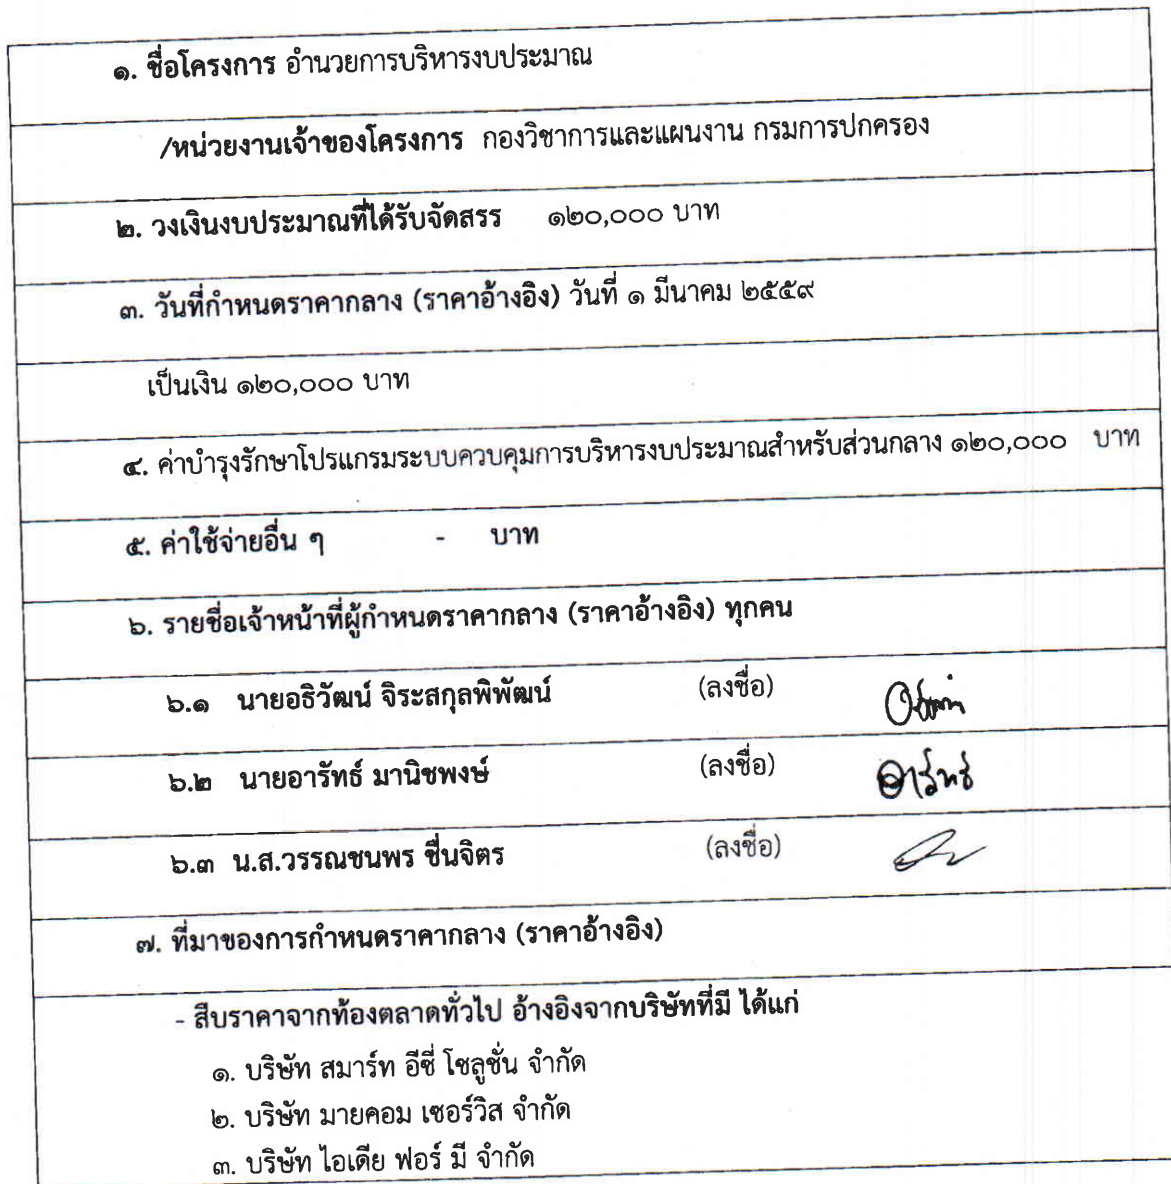 ๑. ชื่อโครงการ อำนวยการบริหารงบประมาณ
/หน่วยงานเจ้าของโครงการ กองวิชาการและแผนงาน กรมการปกครอง
๒. วงเงินงบประมาณที่ได้รับจัดสรร ๑๒๐,๐๐๐ บาท
๓. วันที่กำหนดราคากลาง (ราคาอ้างอิง) วันที่ ๑ มีนาคม ๒๕๕๙
เป็นเงิน ๑๒๐,๐๐๐ บาท
๔. ค่าบำรุงรักษาโปรแกรมระบบควบคุมการบริหารงบประมาณสำหรับส่วนกลาง ๑๒๐,๐๐๐ บาท
๕. ค่าใช้จ่ายอื่น ๆ - บาท
๖. รายชื่อเจ้าหน้าที่ผู้กำหนดราคากลาง (ราคาอ้างอิง) ทุกคน
๖.๑ นายอธิวัฒน์ จิระสกุลพิพัฒน์ (ลงชื่อ)
๖.๒ นายอารัทธ์ มานิชพงษ์ (ลงชื่อ) อารัทธ์
๖.๓ น.ส.วรรณชนพร ชื่นจิตร (ลงชื่อ)
๗. ที่มาของการกำหนดราคากลาง (ราคาอ้างอิง)
- สืบราคาจากท้องตลาดทั่วไป อ้างอิงจากบริษัทที่มี ได้แก่
๑. บริษัท สมาร์ท อีซี่ โซลูชั่น จำกัด
๒. บริษัท มายคอม เซอร์วิส จำกัด
๓. บริษัท ไอเดีย ฟอร์ มี จำกัด